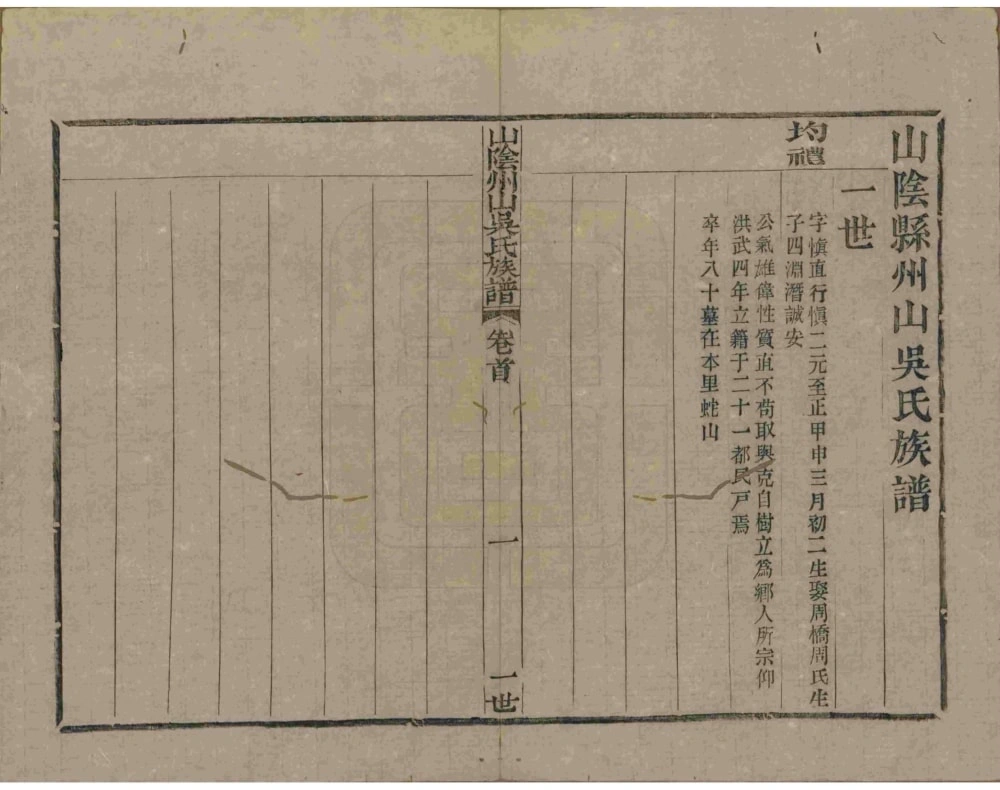 山陰縣州山吳氏族譜
一世
均禮
字愼直行愼二元至正甲申三月初二生娶周橋周氏生
子四淵潛誠安
公氣雄偉性質直不苟取與克自樹立爲鄉人所宗仰
洪武四年立籍于二十一都民戸焉
卒年八十墓在本里蛇山
山陰州山吳氏族譜
卷首
一
一世